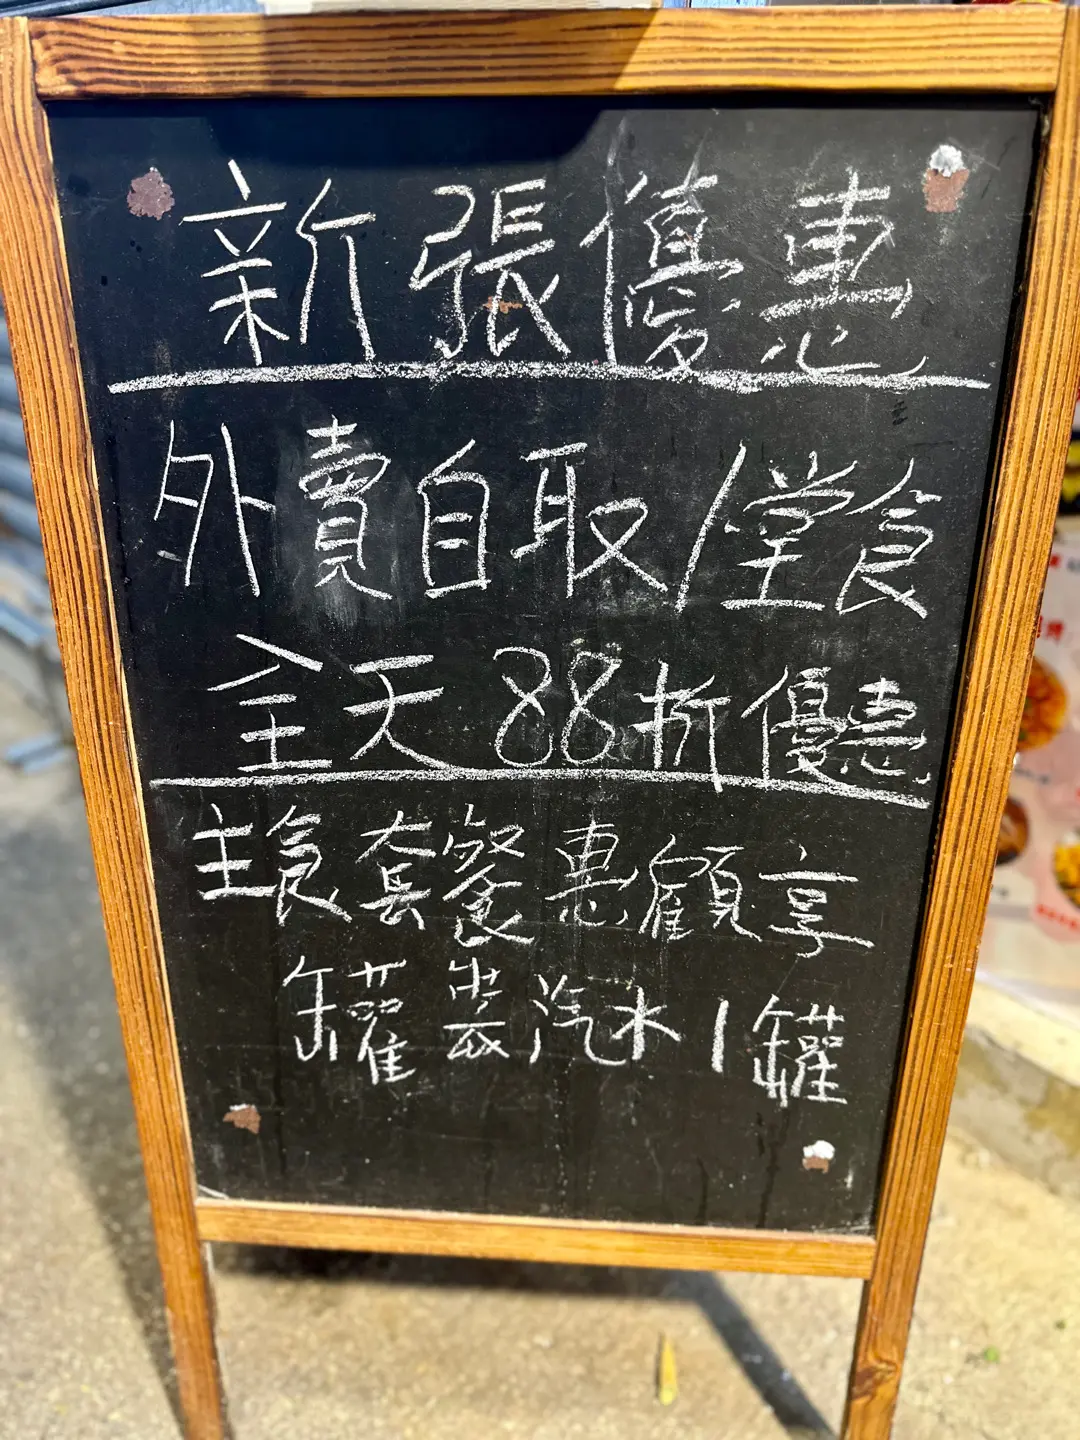 新張優惠
外賣自取/堂食
全天88折優惠
主食套餐惠顧享
罐裝汽水1罐